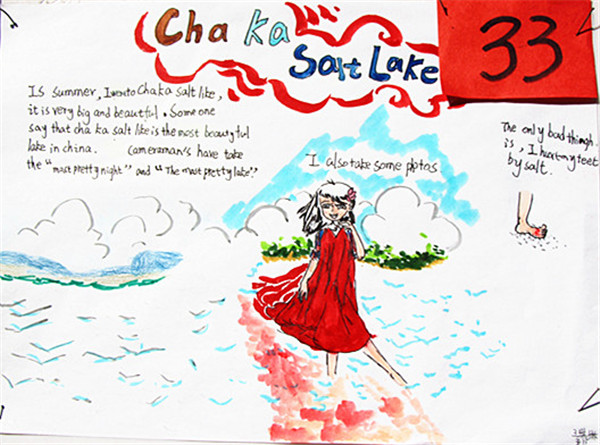 Cha ka
Salt Lake
33
Is summer, I wento Chaka salt like,
it is very big and beautiful. Some one
say that cha ka salt like is the most beautyful
lake in china. Cameraman's have take
the "mast pretty night" and "The mast pretty lake".
I also take some pptos
The only bad thingh
is, I heart my feet
by salt.